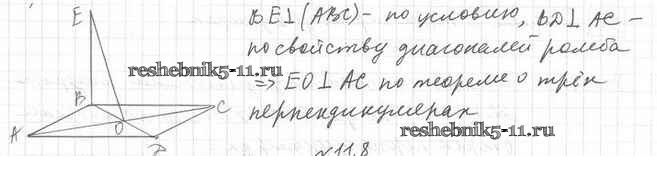 E
B
C
A
O
D
BE⊥(ABC) - по условию, BD⊥AC -
по свойству диагоналей ромба
⇒ EO⊥AC по теореме о трёх
перпендикулярах
reshebnik5-11.ru
reshebnik5-11.ru
№11.8